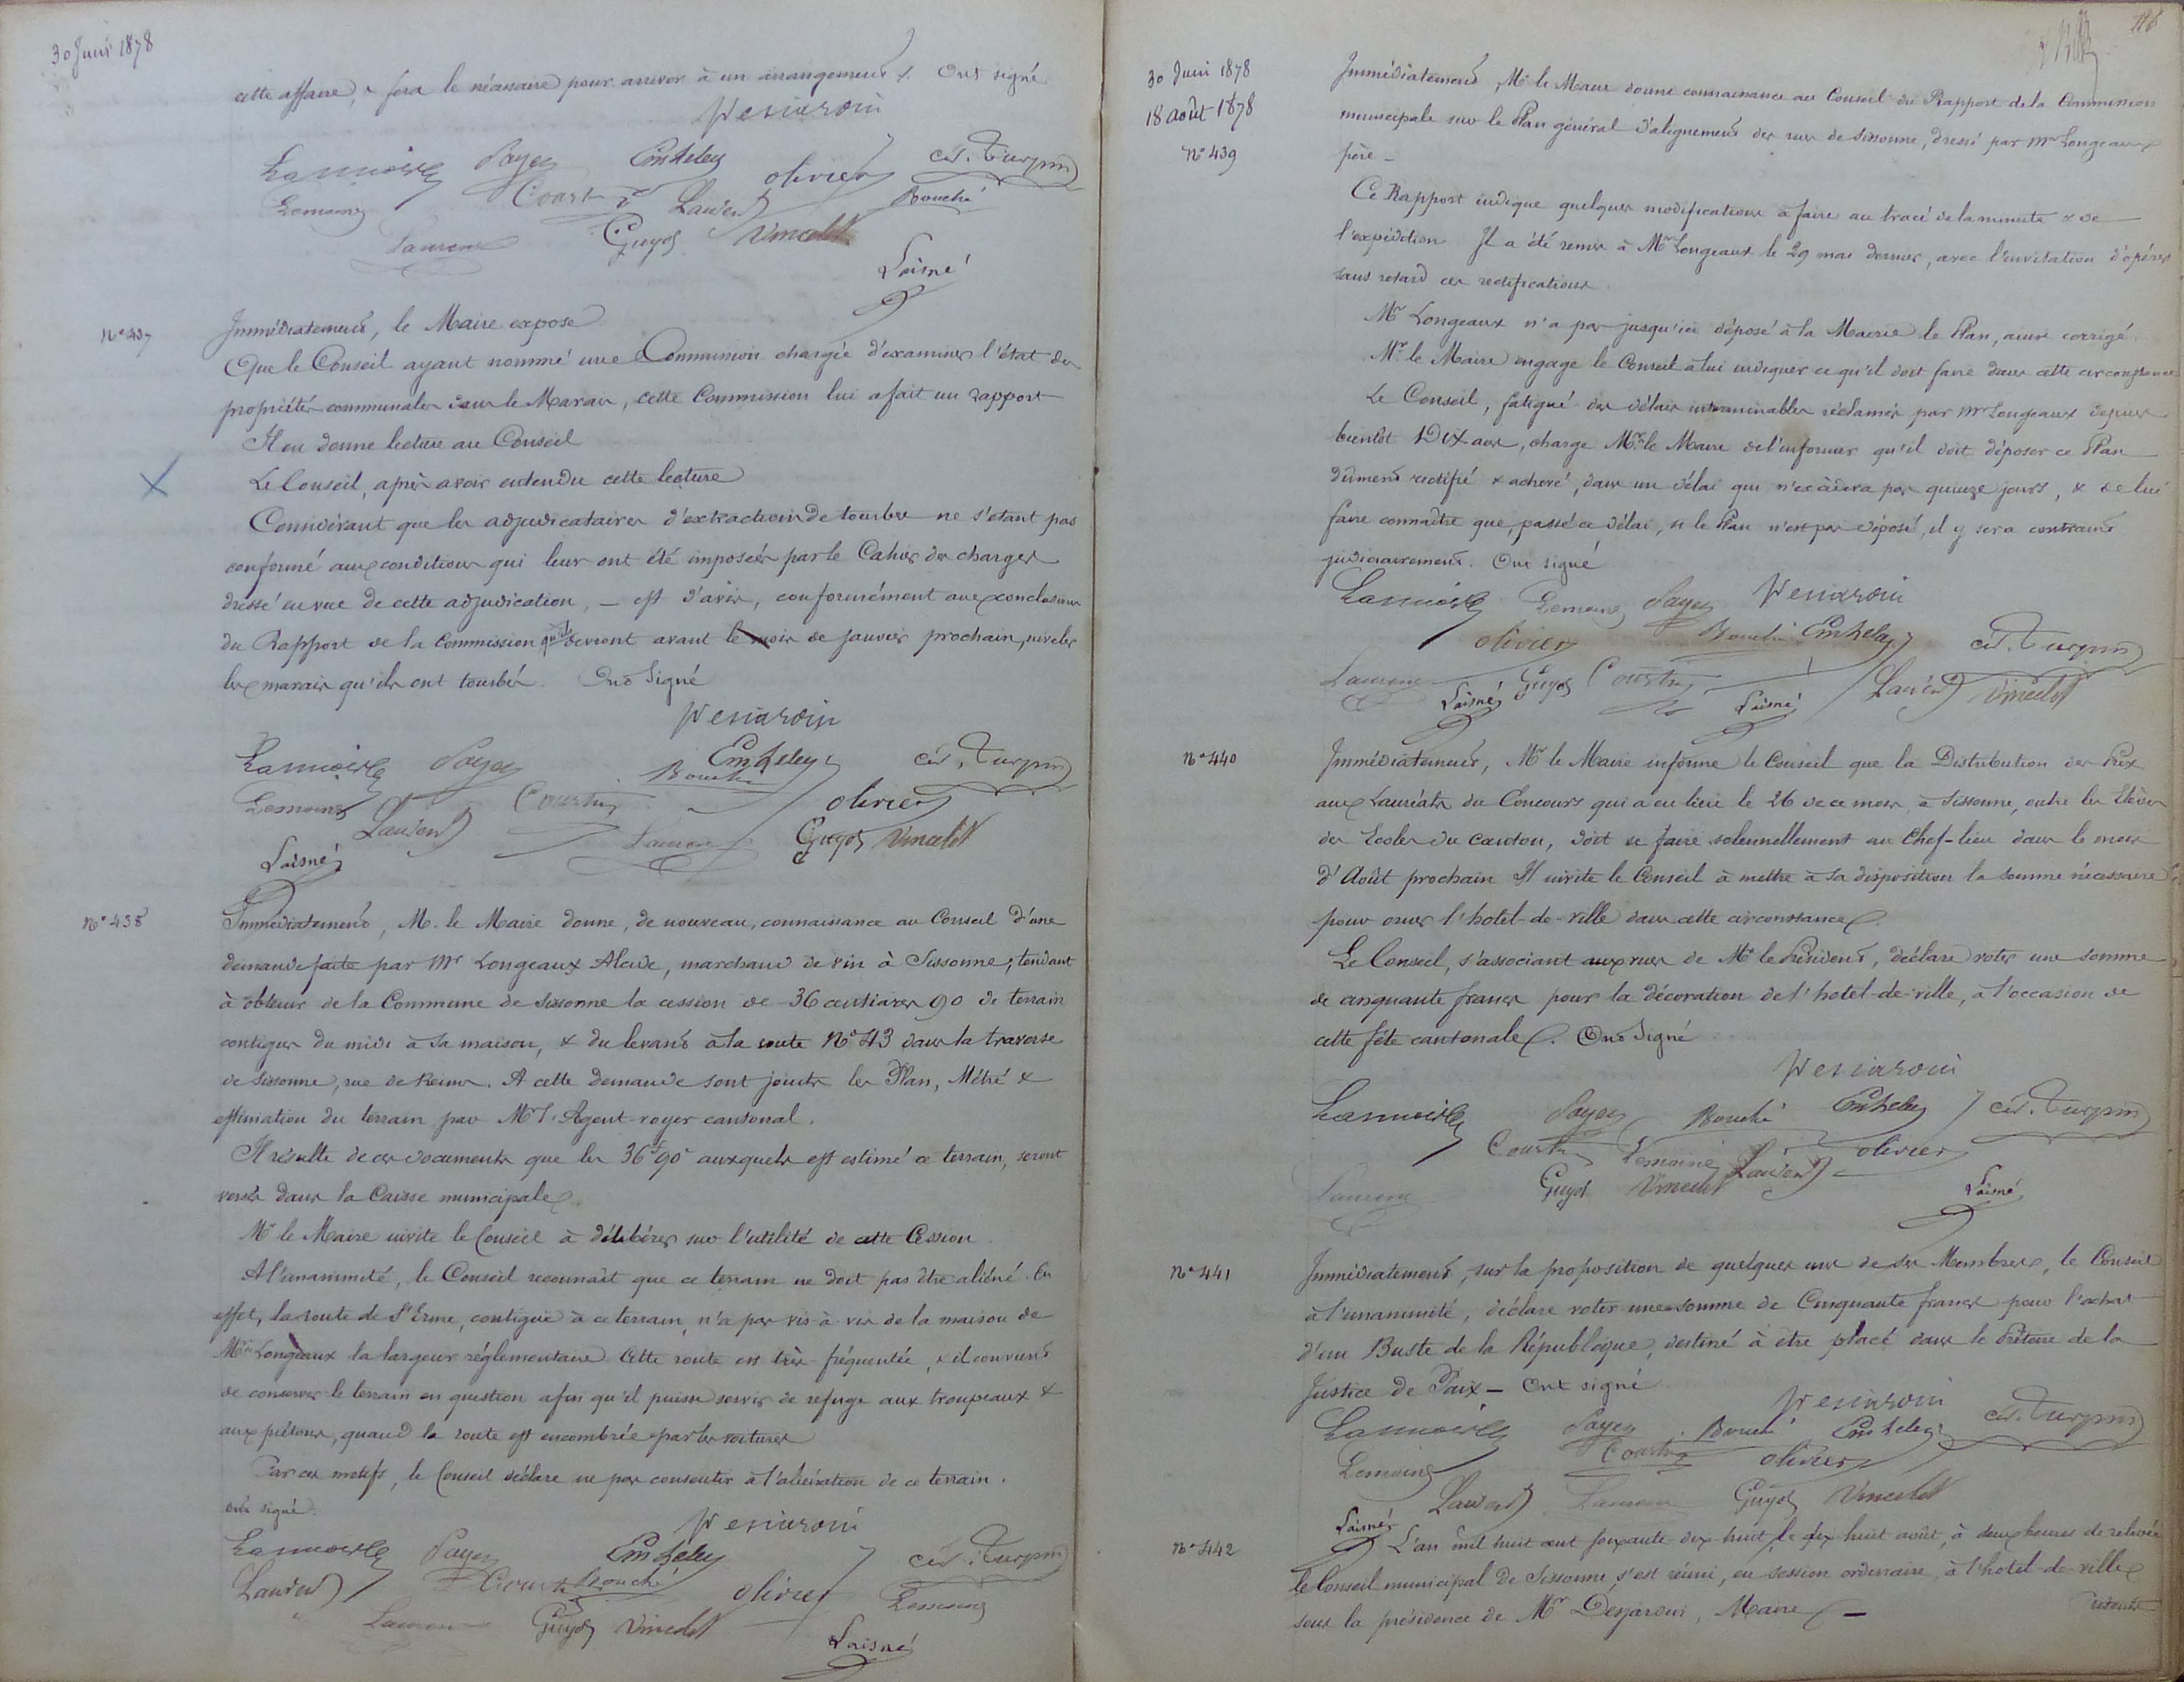 30 Juin 1878
cette affaire, & fera le nécessaire pour arriver à un arrangement. Ont signé
Desjardin
Lannois Payen Cér. Turpin
Olivier
Lemoine Courtin Laurent Bouché
Guyot Vincelet
Laisné
N° 437
Immédiatement, le Maire expose
Que le Conseil ayant nommé une Commission chargée d'examiner l'état des
propriétés communales dans le Marais, cette Commission lui a fait un rapport
Il en donne lecture au Conseil
Le Conseil, après avoir entendu cette lecture
Considérant que les adjudicataires d'extraction de tourbes ne s'étant pas
conformé aux conditions qui leur ont été imposées par le Cahier des charges
dressé en vue de cette adjudication, — est d'avis, conformément aux conclusions
du Rapport de la Commission qu'ils devront avant le mois de janvier prochain, niveler
les marais qu'ils ont tourbés. Ont Signé
Desjardin
Lannois Payen Bouché Cér. Turpin
Lemoine Laurent Courtin Olivier
Guyot Vincelet
Laisné
N° 438
Immédiatement, M. le Maire donne, de nouveau, connaissance au Conseil d'une
demande faite par Mr Longeaux Alcide, marchand de vin à Sissonne, tendant
à obtenir de la Commune de Sissonne la cession de 36 centiares 90 de terrain
contigus du midi à sa maison, & du levant à la route N° 43 dans la traverse
de Sissonne, rue de Reims. A cette demande sont joints les Plan, Métré &
estimation du terrain par Mr l'Agent-voyer cantonal.
Il résulte de ces documents que les 36f 90c auxquels est estimé ce terrain, seront
versés dans la Caisse municipale
Mr le Maire invite le Conseil à délibérer sur l'utilité de cette Cession
A l'unanimité, le Conseil reconnaît que ce terrain ne doit pas être aliéné. En
effet, la route de St Erme, contiguë à ce terrain, n'a pas vis-à-vis de la maison de
Mr Longeaux la largeur réglementaire. Cette route est très fréquentée, & il convient
de conserver le terrain en question afin qu'il puisse servir de refuge aux troupeaux &
aux piétons, quand la route est encombrée par les voitures
Par ces motifs, le Conseil déclare ne pas consentir à l'aliénation de ce terrain.
ont signé
Desjardin
Lannois Payen Cér. Turpin
Laurent Courtin Bouché Olivier Lemoine
Guyot Vincelet
Laisné
116
30 Juin 1878
18 août 1878
N° 439
Immédiatement, Mr le Maire donne connaissance au Conseil du Rapport de la Commission
municipale sur le Plan général d'alignement des rues de Sissonne, dressé par Mr Longeaux
père —
Ce Rapport indique quelques modifications à faire au tracé de la minute & de
l'expédition. Il a été remis à Mr Longeaux le 29 mai dernier, avec l'invitation d'opérer
sans retard ces rectifications.
Mr Longeaux n'a pas jusqu'ici déposé à la Mairie le Plan, ainsi corrigé.
Mr le Maire engage le Conseil à lui indiquer ce qu'il doit faire dans cette circonstance
Le Conseil, fatigué des délais interminables réclamés par Mr Longeaux depuis
bientôt Dix ans, charge Mr le Maire de l'informer qu'il doit déposer ce Plan
dûment rectifié & achevé, dans un délai qui n'excédera pas quinze jours, & de lui
faire connaître que, passé ce délai, si le Plan n'est pas déposé, il y sera contraint
judiciairement. Ont signé
Lannois Lemoine Payen Desjardin
Olivier Bouché Cér. Turpin
Laisné Guyot Courtin Laisné Laurent Vincelet
N° 440
Immédiatement, Mr le Maire informe le Conseil que la Distribution des Prix
aux Lauréats du Concours qui a eu lieu le 26 de ce mois, à Sissonne, entre les Elèves
des Ecoles du canton, doit se faire solennellement au Chef-lieu dans le mois
d'Août prochain. Il invite le Conseil à mettre à sa disposition la somme nécessaire
pour orner l'hotel-de-ville dans cette circonstance.
Le Conseil, s'associant aux vues de Mr le Président, déclare voter une somme
de cinquante francs pour la décoration de l'hotel-de-ville, à l'occasion de
cette fête cantonale. Ont Signé
Desjardin
Lannois Payen Bouché Cér. Turpin
Courtin Lemoine Laurent Olivier
Guyot Vincelet Laisné
N° 441
Immédiatement, sur la proposition de quelques uns de ses Membres, le Conseil
à l'unanimité, déclare voter une somme de Cinquante francs pour l'achat
d'un Buste de la République, destiné à être placé dans le Prétoire de la
Justice de Paix — Ont signé
Desjardin
Lannois Payen Bouché Cér. Turpin
Lemoine Courtin Olivier
Laurent Guyot Vincelet
Laisné
N° 442
L'an mil huit cent soixante-dix-huit, le dix huit août, à deux heures de relevée
le Conseil municipal de Sissonne, s'est réuni, en session ordinaire, à l'hotel-de-ville
sous la présidence de Mr Desjardin, Maire —